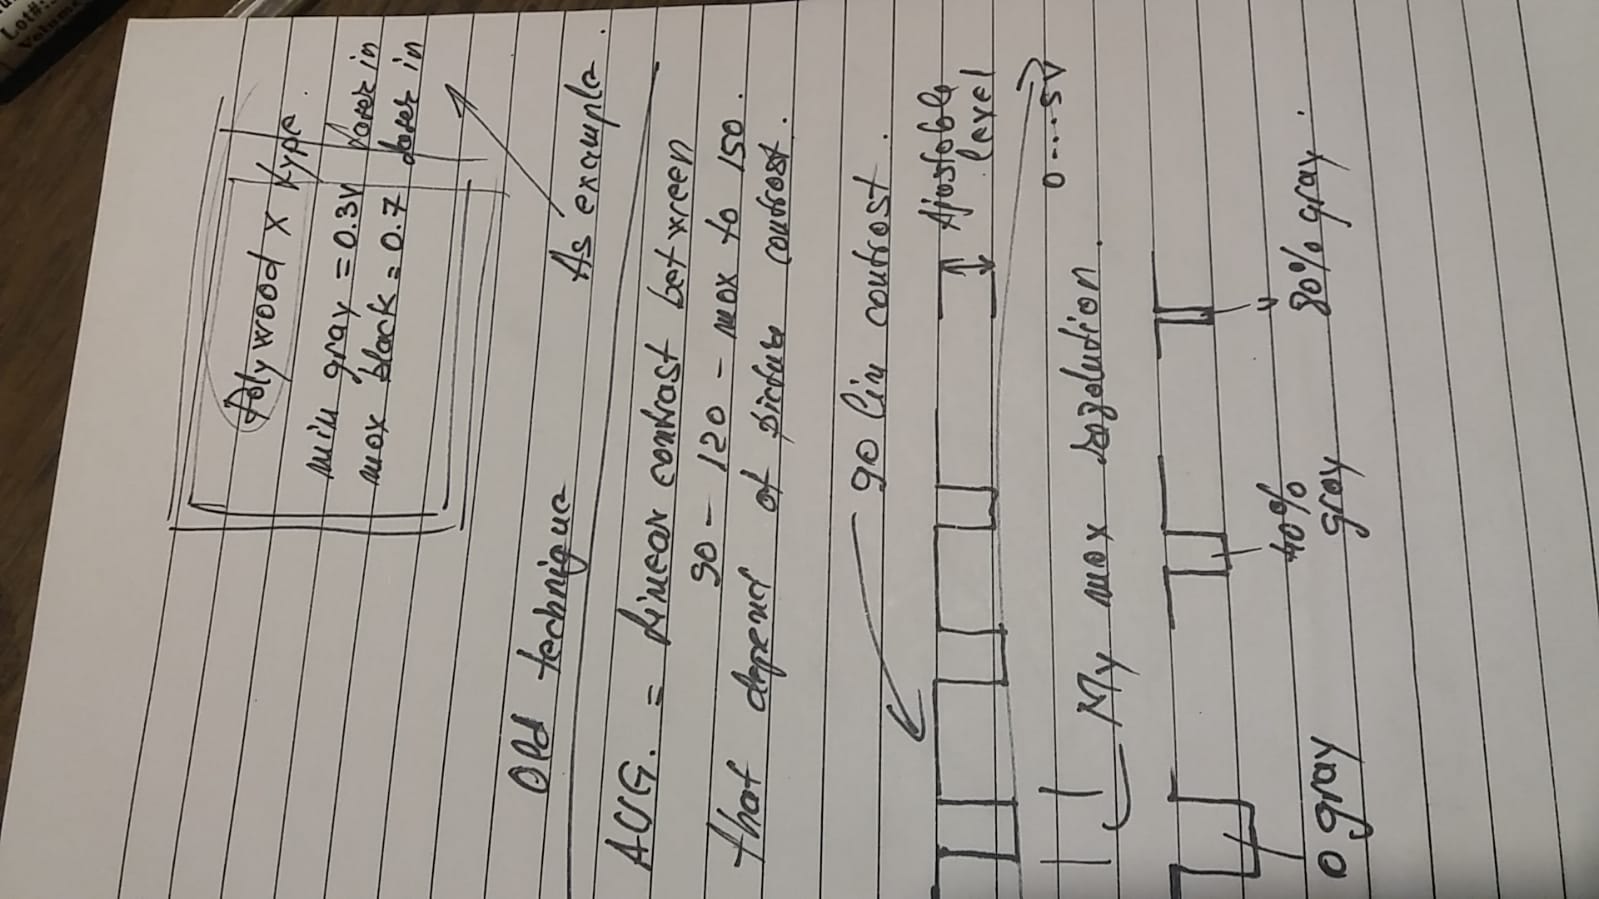 Lot#:
Volume
Polywood x type.
min gray = 0.3V laser in
max black = 0.7 laser in
As example.
Old technique
AVG. = Linear contrast betwreen
90 - 120 - max to 150.
that depend of picture contrast.
90 lin contrast.
Ajustoble
level
0....5V
My max rezolution.
0 gray
40%
gray
80% gray.